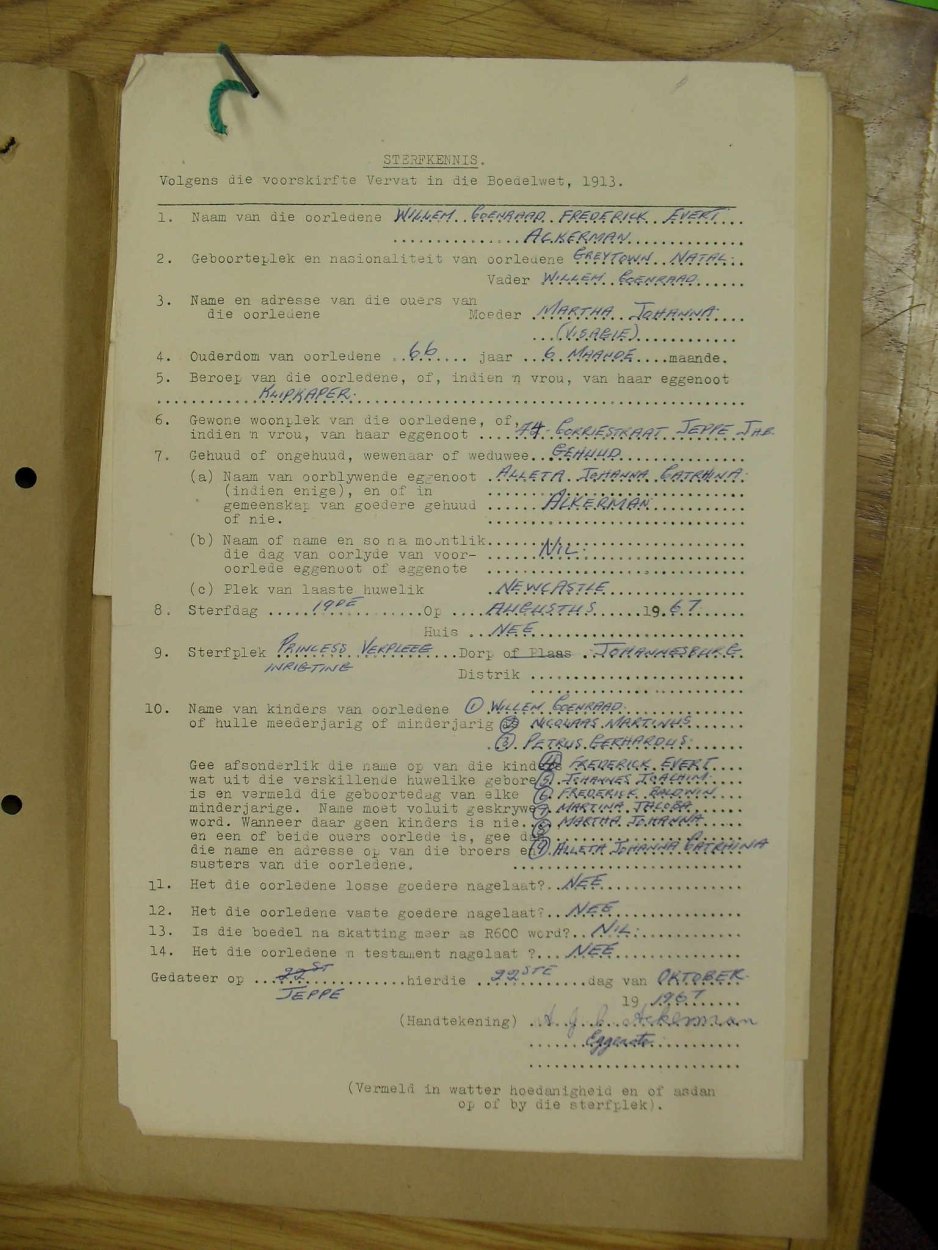 STERFKENNIS.
Volgens die voorskirfte Vervat in die Boedelwet, 1913.
1. Naam van die oorledene WILLEM COENRAAD FREDERICK EVERT
ACKERMAN
2. Geboorteplek en nasionaliteit van oorledene GREYTOWN NATAL.
Vader WILLEM COENRAAD
3. Name en adresse van die ouers van
die oorledene Moeder MARTHA JOHANNA
(VISAGIE)
4. Ouderdom van oorledene 66 jaar 6 MAANDE maande.
5. Beroep van die oorledene, of, indien 'n vrou, van haar eggenoot
KLIPKAPER.
6. Gewone woonplek van die oorledene, of,
indien 'n vrou, van haar eggenoot 74 CORRIESTRAAT JEPPE JHB.
7. Gehuud of ongehuud, wewenaar of weduwee GEHUUD
(a) Naam van oorblywende eggenoot ALLETA JOHANNA CATRHINA
(indien enige), en of in
gemeenskap van goedere gehuud ACKERMAN
of nie.
(b) Naam of name en so na moontlik
die dag van oorlyde van voor- NIL.
oorlede eggenoot of eggenote
(c) Plek van laaste huwelik NEWCASTLE
8. Sterfdag 19DE Op AUGUSTUS 1967
Huis NEE
9. Sterfplek PRINCESS VERPLEEG Dorp of Plaas JOHANNESBURG
INRIGTING
Distrik
10. Name van kinders van oorledene (1) WILLEM COENRAAD
of hulle meederjarig of minderjarig (2) NICOLAAS MARTINUS
(3) PETRUS GERHARDUS
Gee afsonderlik die name op van die kinders (4) FREDERICK EVERT
wat uit die verskillende huwelike gebore (5) JOHANNES JOACHIM
is en vermeld die geboortedag van elke (6) FREDERICK BALDWIN
minderjarige. Name moet voluit geskrywe (7) MARTINA JACOBA
word. Wanneer daar geen kinders is nie. (8) MARTHA JOHANNA
en een of beide ouers oorlede is, gee dan
die name en adresse op van die broers en (9) ALLETA JOHANNA CATRHINA
susters van die oorledene.
11. Het die oorledene losse goedere nagelaat? NEE
12. Het die oorledene vaste goedere nagelaat? NEE
13. Is die boedel na skatting meer as R600 word? NIL.
14. Het die oorledene 'n testament nagelaat ? NEE
Gedateer op 22ST hierdie 22STE dag van OKTOBER
JEPPE
19 1967
(Handtekening) A. J. C. Ackerman
Eggenote
(Vermeld in watter hoedanigheid en of asdan
op of by die sterfplek).